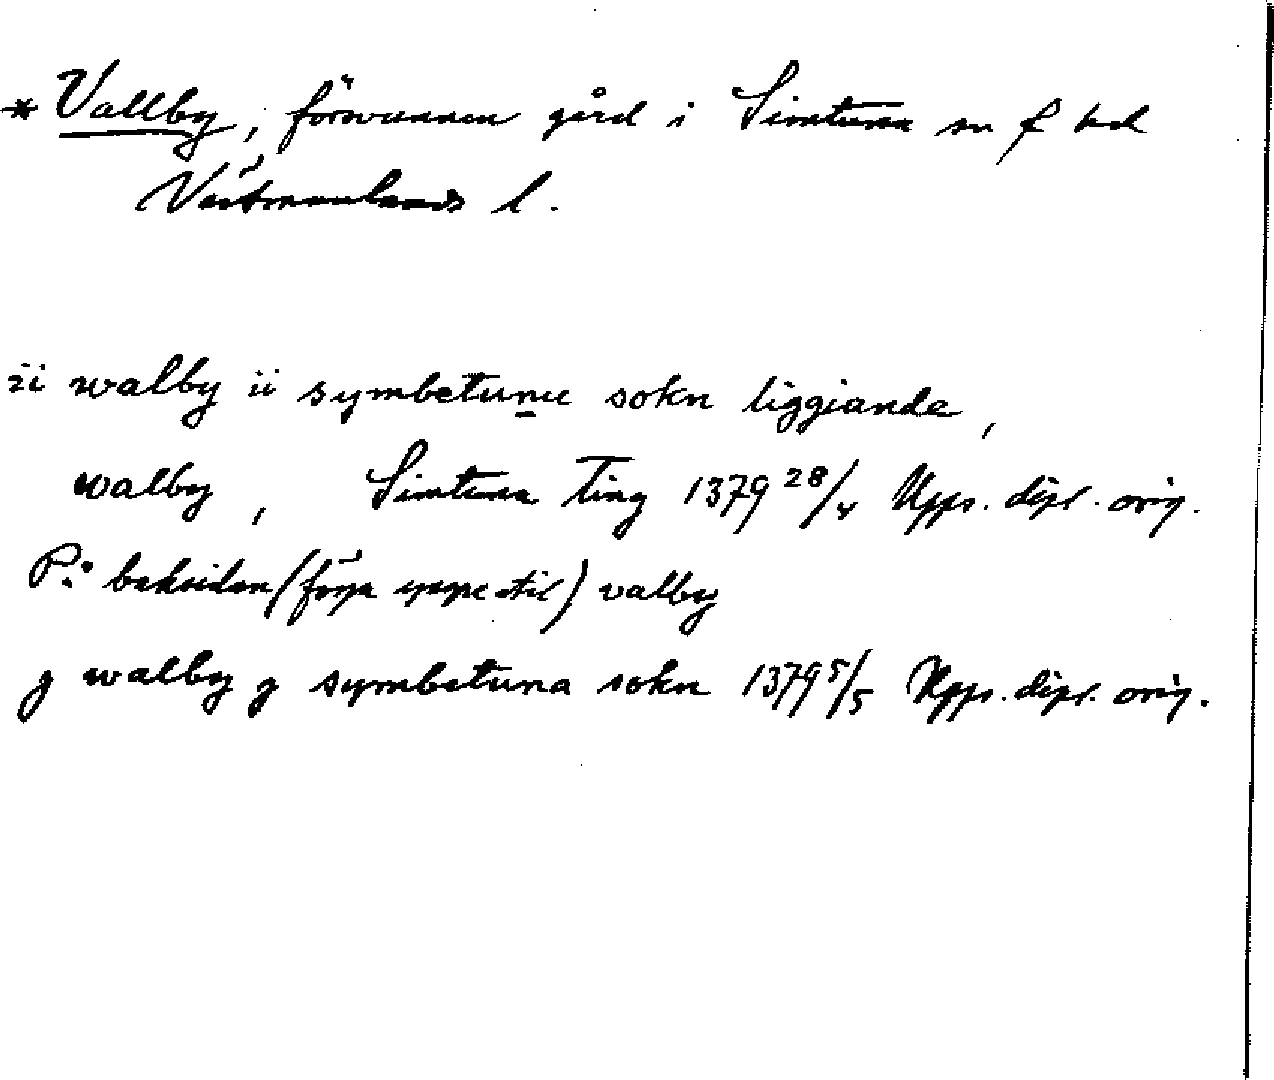 * Vallby, försvunnen gård i Simtuna sn f hd
Västmanlands l.
ii walby ii symbetunu sokn liggiande,
walby, Simtuna Ting 1379 28/4 Upps. dipl. orig.
På baksidan ( ) valby
j walby j symbetuna sokn 1379 5/5 Upps. dipl. orig.